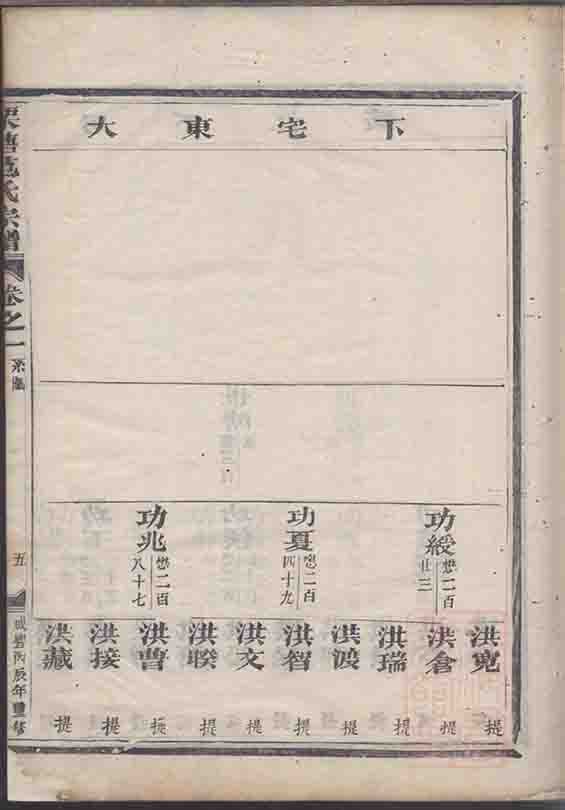 下宅東大
功緩
懋二百
廿三
功夏
懋二百
四十九
功兆
懋二百
八十七
洪寬 提
洪倉 提
洪瑞 提
洪渡 提
洪智 提
洪文 提
洪睽 提
洪曹 提
洪接 提
洪藏 提
氏宗譜
卷之一
系圖
五
咸豐丙辰年重修